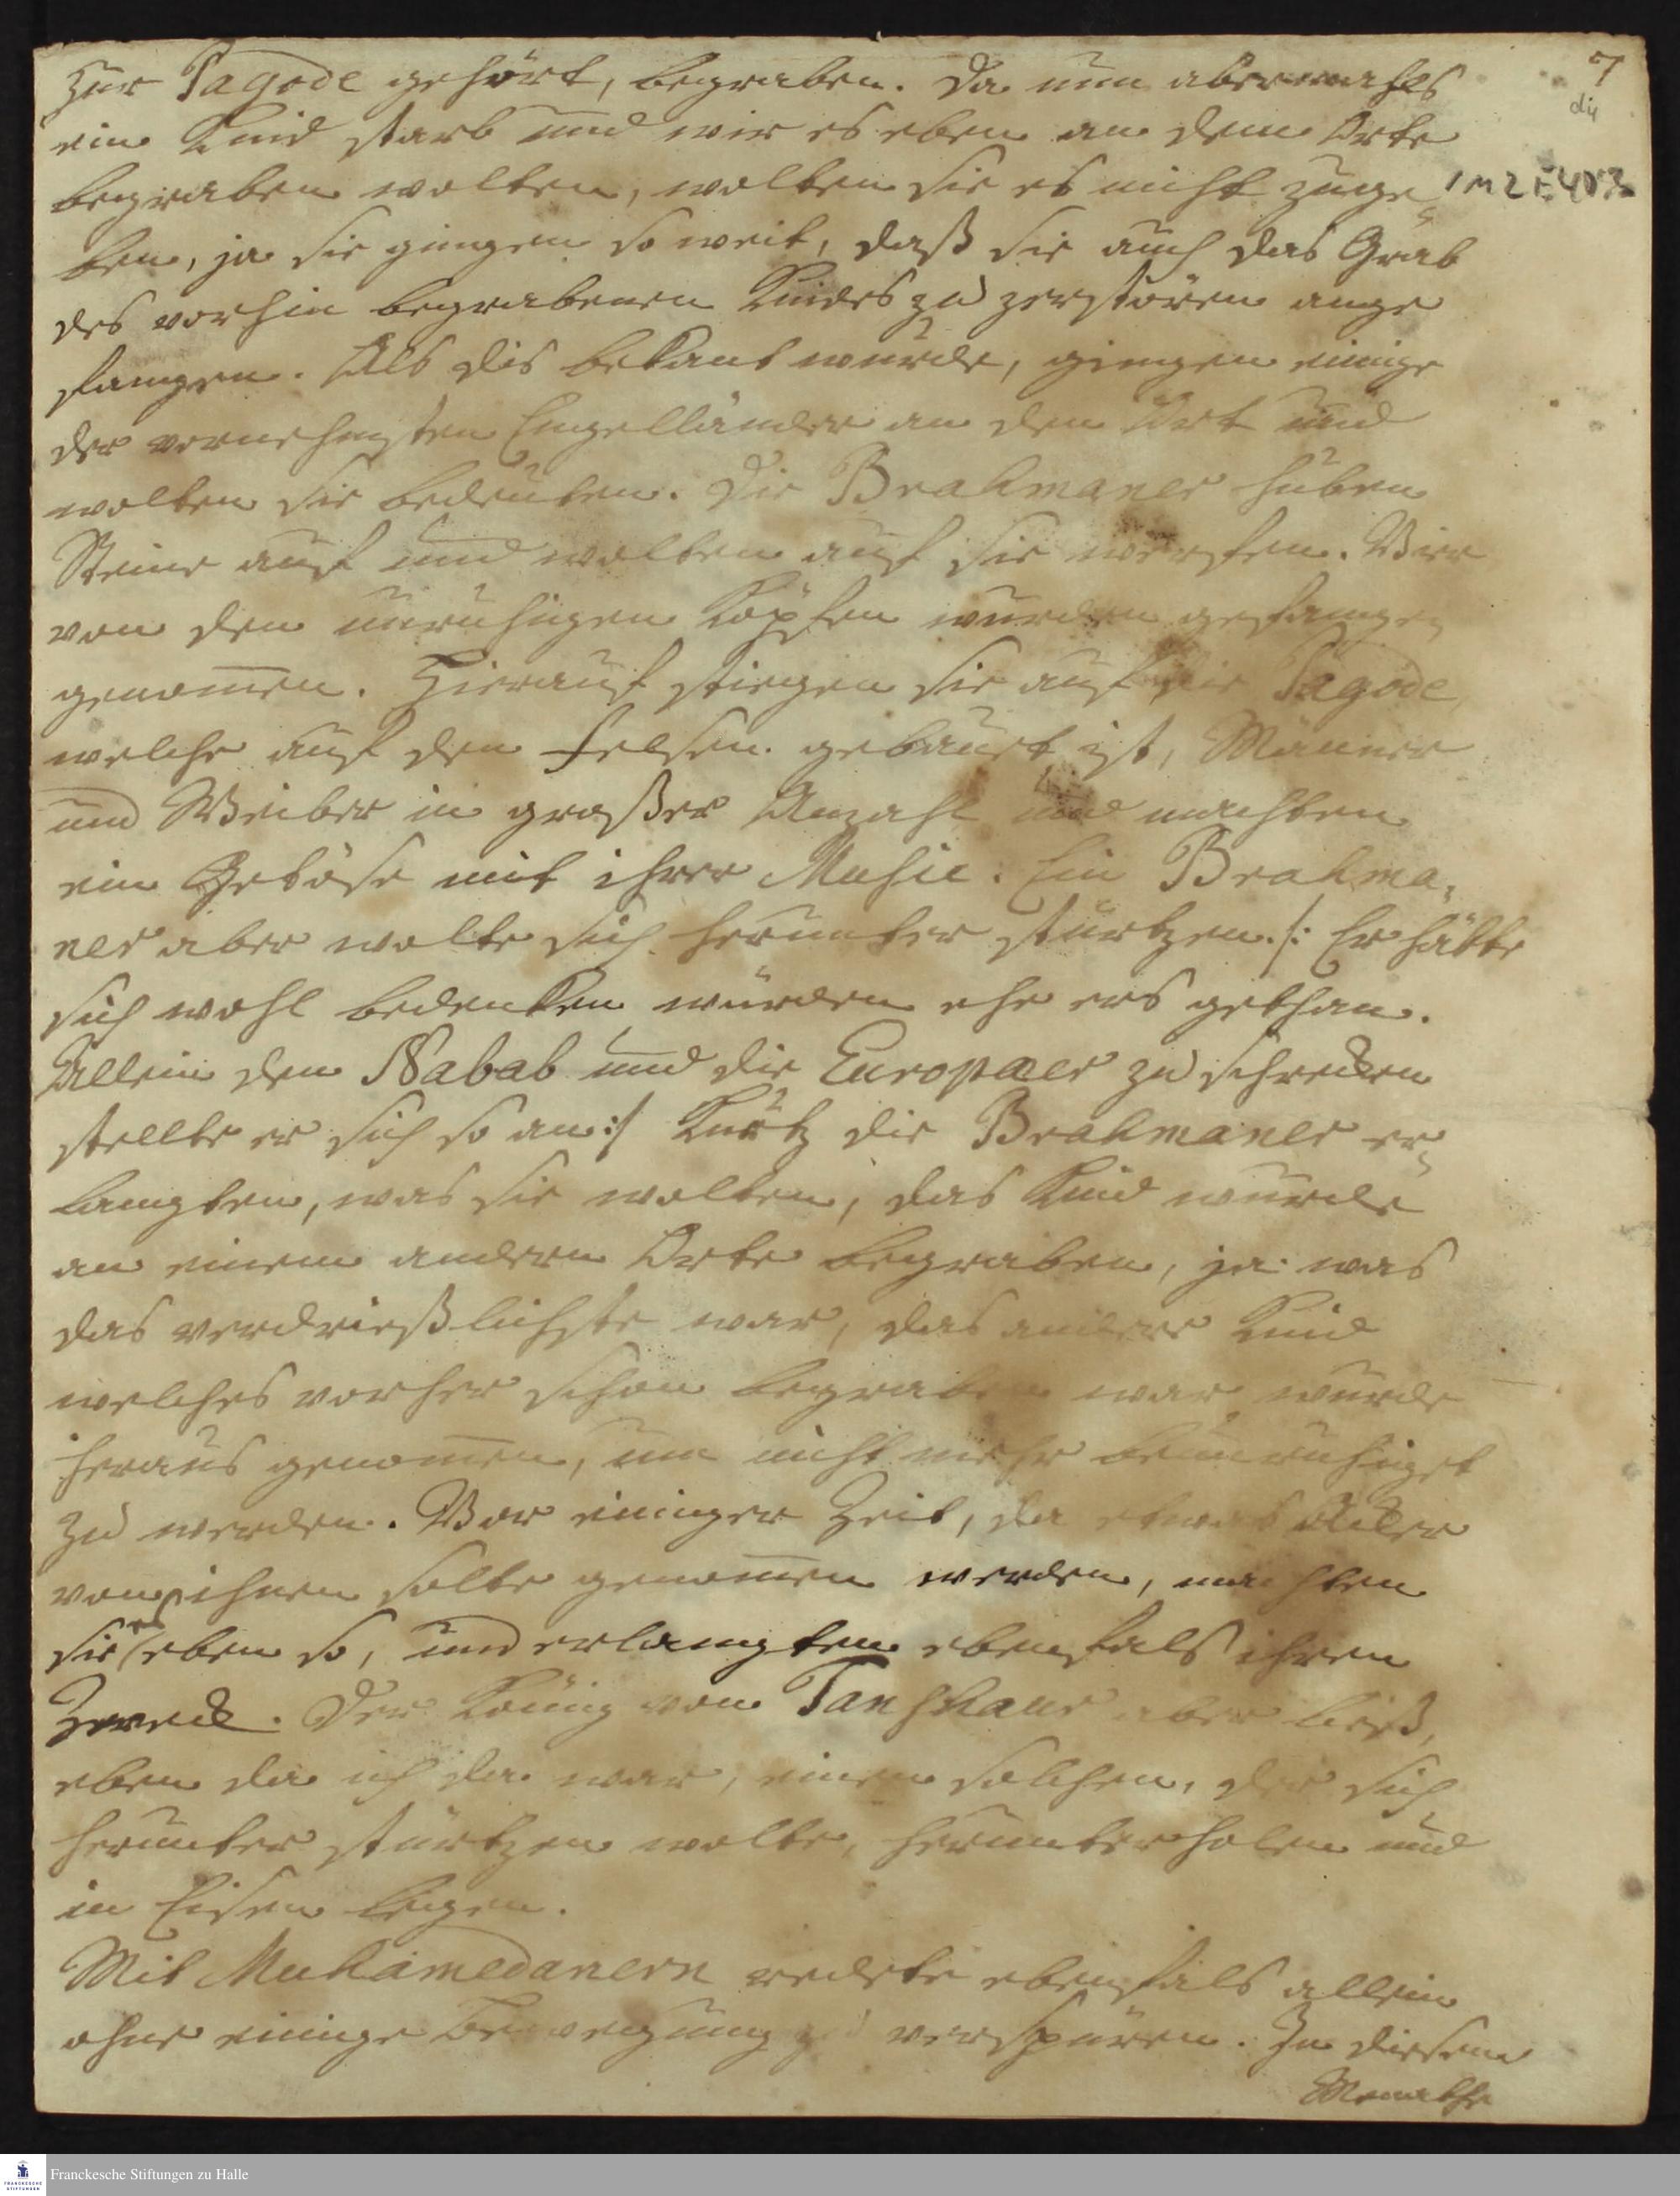 7
die
1 M 2 E 40 3
zur Pagode gehört, begraben. Da nun abermahls
ein Kind starb und wir es eben an dem Orte
begraben wolten, wolten sie es nicht zuge
ben, ja sie gingen so weit, daß sie auch das Grab
des vorhin begrabenen Kindes zu zerstören ange
fangen. Als dis bekant wurde, gingen einige
der vornehmsten Engelländer an den Ort und
wolten sie bedeuten. Die Brahmaner huben
Steine auf und wolten auf sie werfen. Vier
von den unruhigen Köpfen wurden gefangen
genom̄en. Hierauf stiegen sie auf die Pagode,
welche auf den Felsen gebauet ist, Männer
und Weiber in großer Anzahl und machten
ein Getöse mit ihrer Music. Ein Brahma„
ner aber wolte sich herunter stürtzen. /: Er hätte
sich wohl bedenken würden ehe ers gethan.
Allein den Nabab und die Europaeer zu schrecken
stellte er sich so an :/ Kurtz die Brahmaner er„
langten, was sie wolten, das Kind wurde
an einem andern Orte begraben, ja was
das verdrießlichste war, das andere Kind
welches vorher schon begraben war wurde
heraus genom̄en, um nicht mehr beunruhiget
zu werden. Vor einiger Zeit, da etwas Acker
von ihnen solte genom̄en werden, machten
sie es eben so, und erlangten ebenfals ihren
Zweck. Der König von Tanschaur aber ließ,
eben da ich da war, einen solchen, der sich
herunter stürtzen wolte, herunter holen und
in Eisen legen.
Mit Muhamedanern redete ebenfals allein
ohne einige Bewegung zu verspüren. In diesem
Monathe
Franckesche Stiftungen zu Halle